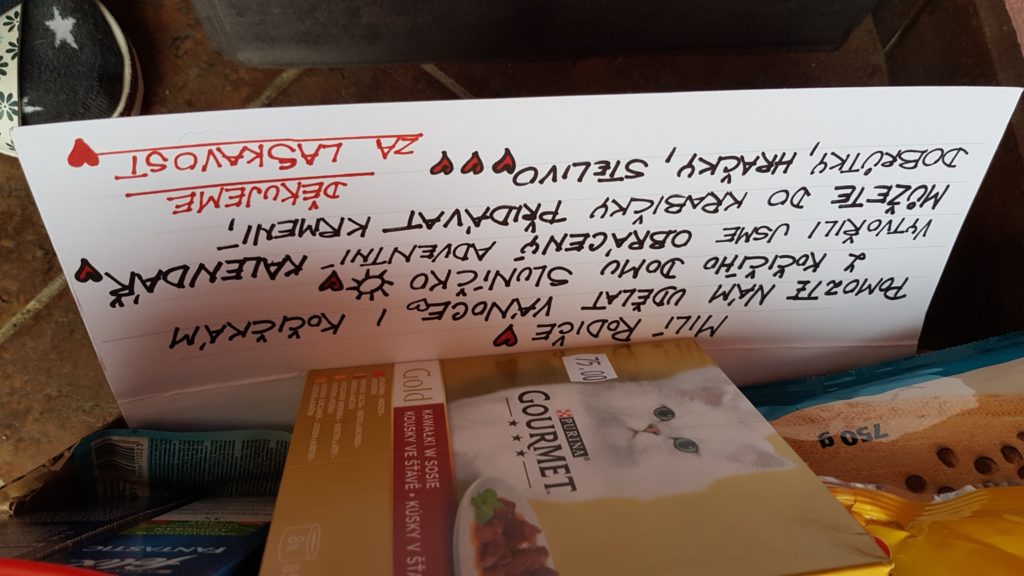 MILÍ RODIČE
POMOZTE NÁM UDĚLAT VÁNOCE I KOČIČKÁM
Z KOČIČÍHO DOMU SLUNÍČKO
VYTVOŘILI JSME OBRÁCENÝ ADVENTNÍ KALENDÁŘ
MŮŽETE DO KRABIČKY PŘIDÁVAT KRMENÍ,
DOBRŮTKY, HRAČKY, STELIVO
DĚKUJEME
ZA LASKAVOST
75.00
PURINA
GOURMET
Gold
KAWAŁKI W SOSIE
KOUSKY VE ŠŤÁVĚ • KÚSKY V ŠŤA
750 g
Felix
FANTASTIC